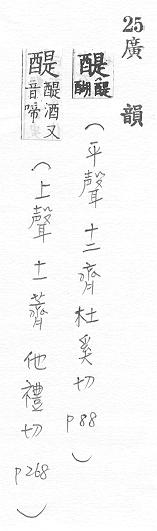 25廣韻
醍醍醐(平聲十二齊杜奚切 p88)
醍醍酒又音啼(上聲十一薺他禮切 p268)